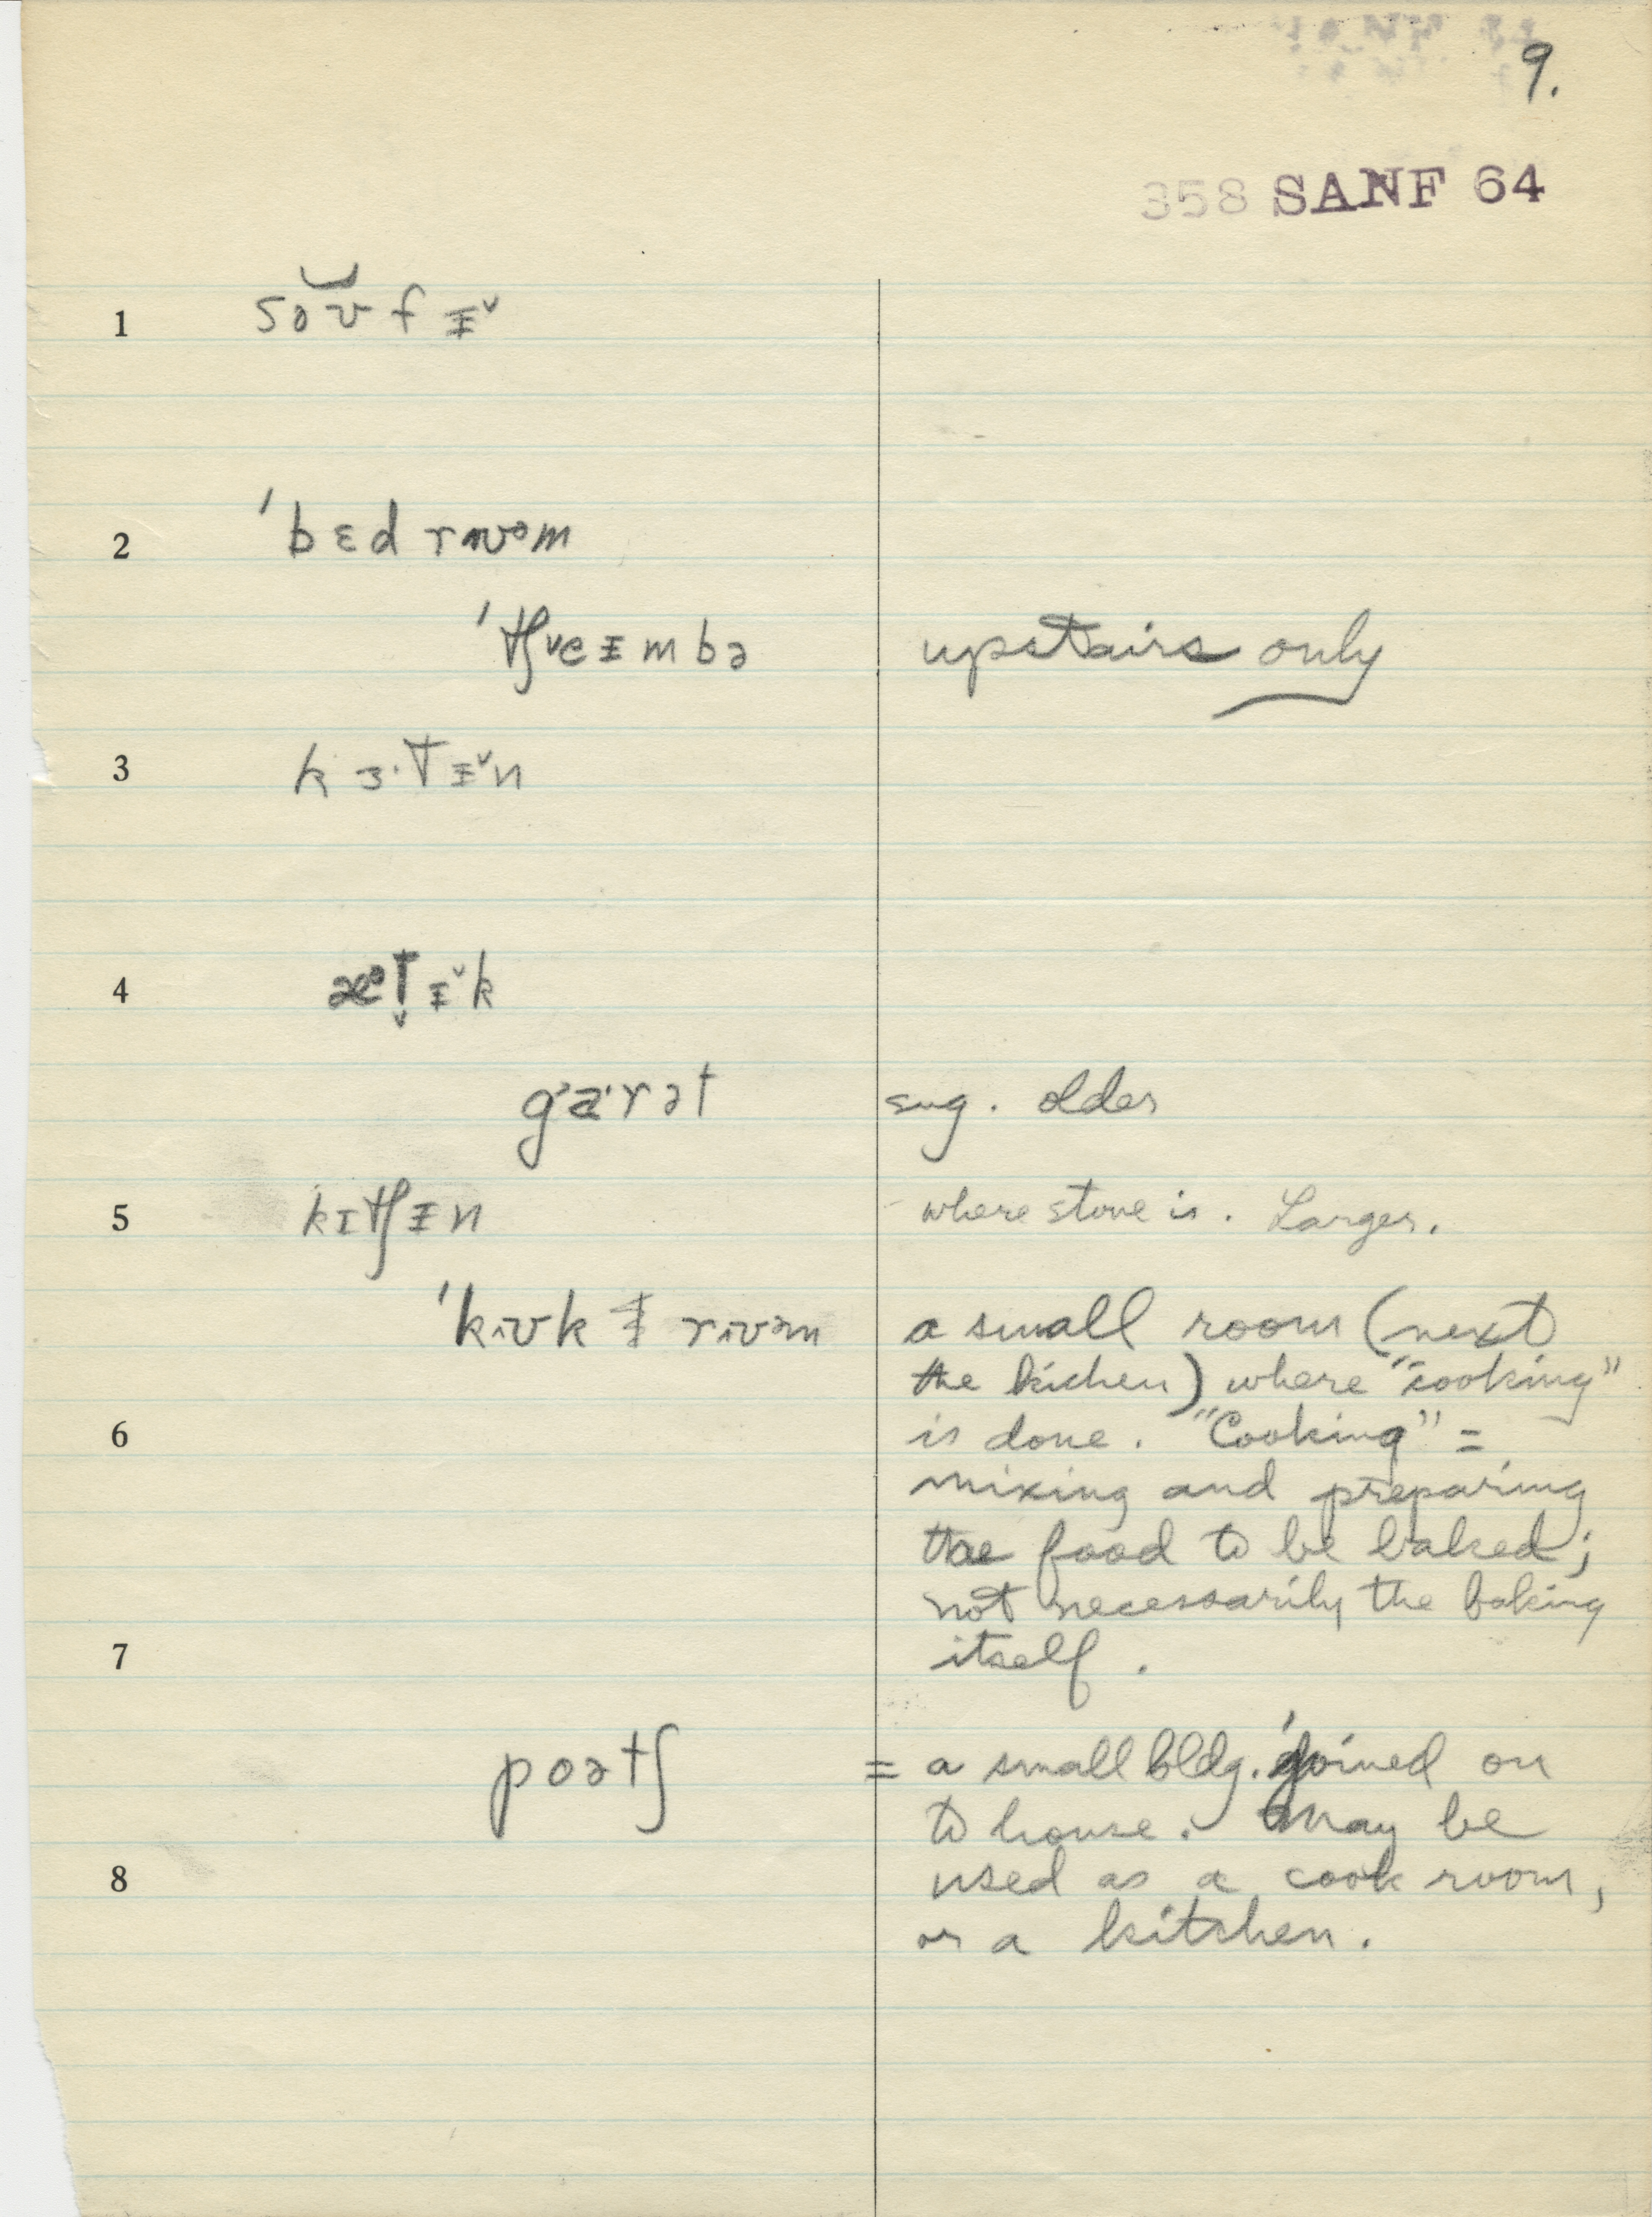 9.
358 SANF 64
1 so͝ʊfᵻ˅
2 ˈbɛd rʊᵊm
ˈtʃeᵻmbə upstairs only
3 kɜ·tᵻ˅n
4 ᵻ˅k
gærət sug. older
5 kɪtʃᵻn where stove is. Larger.
ˈkʊk ᵻ rʊəm a small room (next
the kichen) where "cooking"
6 is done. "Cooking" =
mixing and preparing
the food to be baked;
not necessarily the baking
7 itself.
poətʃ = a small bldg. joined on
to house. May be
8 used as a cook room,
or a kitchen.